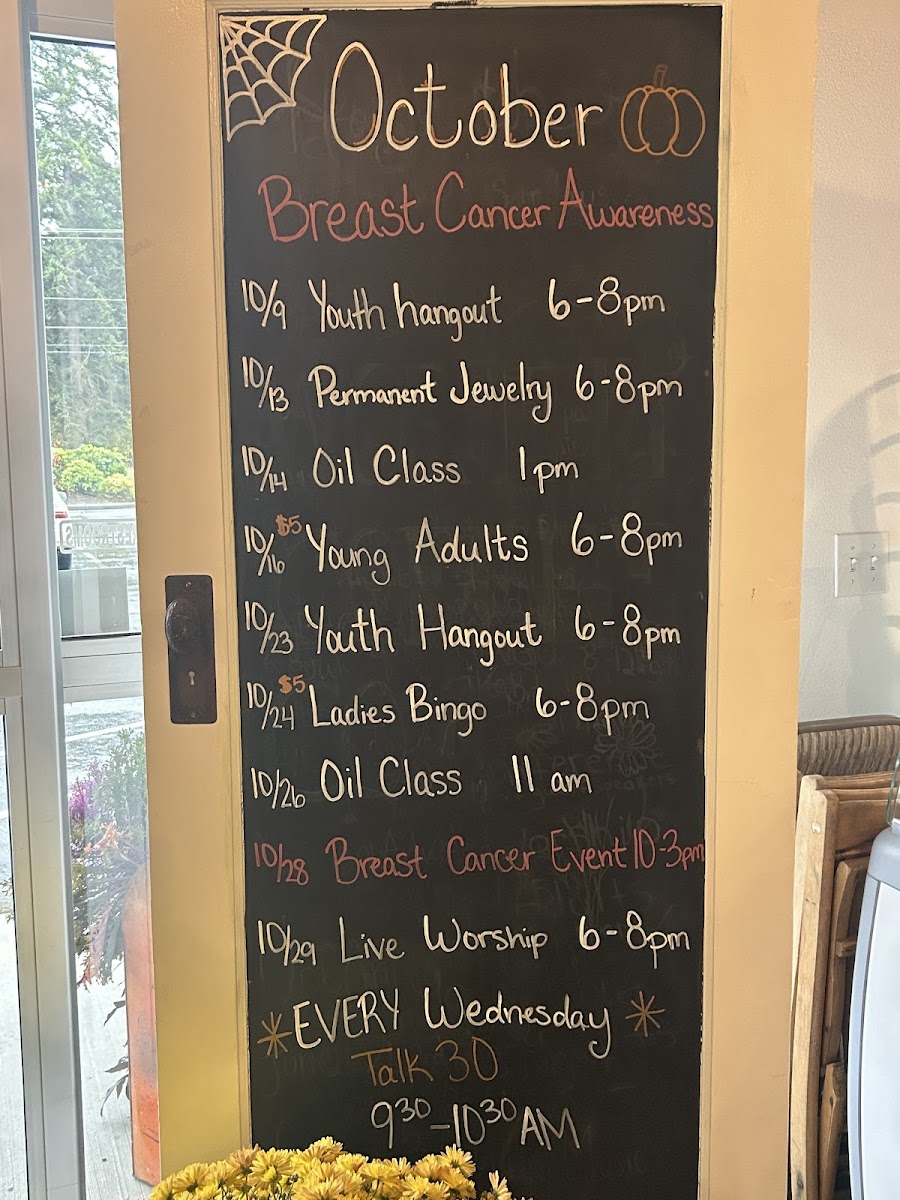 October
Breast Cancer Awareness
10/9 Youth hangout 6-8pm
10/13 Permanent Jewelry 6-8pm
10/14 Oil Class 1pm
10/16 $5 Young Adults 6-8pm
10/23 Youth Hangout 6-8pm
10/24 $5 Ladies Bingo 6-8pm
10/26 Oil Class 11 am
10/28 Breast Cancer Event 10-3pm
10/29 Live Worship 6-8pm
*EVERY Wednesday*
Talk 30
9³⁰-10³⁰ AM